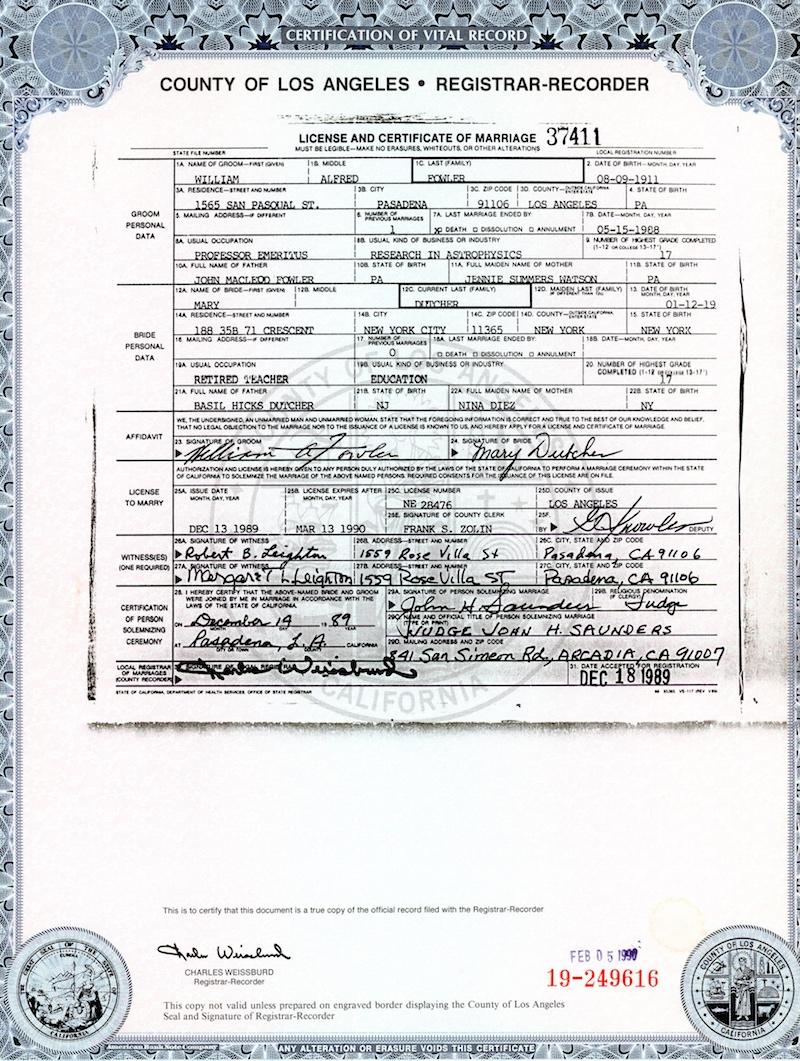 CERTIFICATION OF VITAL RECORD
COUNTY OF LOS ANGELES • REGISTRAR-RECORDER
LICENSE AND CERTIFICATE OF MARRIAGE 37411
STATE FILE NUMBER MUST BE LEGIBLE—MAKE NO ERASURES, WHITEOUTS, OR OTHER ALTERATIONS LOCAL REGISTRATION NUMBER
GROOM PERSONAL DATA
1A. NAME OF GROOM—FIRST (GIVEN) 1B. MIDDLE 1C. LAST (FAMILY) 2. DATE OF BIRTH—MONTH, DAY, YEAR
WILLIAM ALFRED FOWLER 08-09-1911
3A. RESIDENCE—STREET AND NUMBER 3B. CITY 3C. ZIP CODE 3D. COUNTY—OUTSIDE CALIFORNIA ENTER STATE 4. STATE OF BIRTH
1565 SAN PASQUAL ST. PASADENA 91106 LOS ANGELES PA
5. MAILING ADDRESS—IF DIFFERENT 6. NUMBER OF PREVIOUS MARRIAGES 7A. LAST MARRIAGE ENDED BY: 7B. DATE—MONTH, DAY, YEAR
1 XD DEATH DISSOLUTION ANNULMENT 05-15-1988
8A. USUAL OCCUPATION 8B. USUAL KIND OF BUSINESS OR INDUSTRY 9. NUMBER OF HIGHEST GRADE COMPLETED (1-12 OR COLLEGE 13-17+)
PROFESSOR EMERITUS RESEARCH IN ASTROPHYSICS 17
10A. FULL NAME OF FATHER 10B. STATE OF BIRTH 11A. FULL MAIDEN NAME OF MOTHER 11B. STATE OF BIRTH
JOHN MACLEOD FOWLER PA JENNIE SUMMERS WATSON PA
BRIDE PERSONAL DATA
12A. NAME OF BRIDE—FIRST (GIVEN) 12B. MIDDLE 12C. CURRENT LAST (FAMILY) 12D. MAIDEN LAST (FAMILY) IF DIFFERENT THAN 12C 13. DATE OF BIRTH MONTH, DAY, YEAR
MARY DUTCHER 01-12-19
14A. RESIDENCE—STREET AND NUMBER 14B. CITY 14C. ZIP CODE 14D. COUNTY—OUTSIDE CALIFORNIA ENTER STATE 15. STATE OF BIRTH
188 35B 71 CRESCENT NEW YORK CITY 11365 NEW YORK NEW YORK
16. MAILING ADDRESS—IF DIFFERENT 17. NUMBER OF PREVIOUS MARRIAGES 18A. LAST MARRIAGE ENDED BY: 18B. DATE—MONTH, DAY, YEAR
0 DEATH DISSOLUTION ANNULMENT
19A. USUAL OCCUPATION 19B. USUAL KIND OF BUSINESS OR INDUSTRY 20. NUMBER OF HIGHEST GRADE COMPLETED (1-12 OR COLLEGE 13-17+)
RETIRED TEACHER EDUCATION 17
21A. FULL NAME OF FATHER 21B. STATE OF BIRTH 22A. FULL MAIDEN NAME OF MOTHER 22B. STATE OF BIRTH
BASIL HICKS DUTCHER NJ NINA DIEZ NY
AFFIDAVIT
WE, THE UNDERSIGNED, AN UNMARRIED MAN AND UNMARRIED WOMAN, STATE THAT THE FOREGOING INFORMATION IS CORRECT AND TRUE TO THE BEST OF OUR KNOWLEDGE AND BELIEF,
THAT NO LEGAL OBJECTION TO THE MARRIAGE NOR TO THE ISSUANCE OF A LICENSE IS KNOWN TO US, AND HEREBY APPLY FOR A LICENSE AND CERTIFICATE OF MARRIAGE.
23. SIGNATURE OF GROOM 24. SIGNATURE OF BRIDE
William A Fowler Mary Dutcher
LICENSE TO MARRY
AUTHORIZATION AND LICENSE IS HEREBY GIVEN TO ANY PERSON DULY AUTHORIZED BY THE LAWS OF THE STATE OF CALIFORNIA TO PERFORM A MARRIAGE CEREMONY WITHIN THE STATE
OF CALIFORNIA TO SOLEMNIZE THE MARRIAGE OF THE ABOVE NAMED PERSONS. REQUIRED CONSENTS FOR THE ISSUANCE OF THIS LICENSE ARE ON FILE.
25A. ISSUE DATE MONTH, DAY, YEAR 25B. LICENSE EXPIRES AFTER MONTH, DAY, YEAR 25C. LICENSE NUMBER 25D. COUNTY OF ISSUE
NE 28476 LOS ANGELES
25E. SIGNATURE OF COUNTY CLERK 25F.
DEC 13 1989 MAR 13 1990 FRANK S. ZOLIN BY DEPUTY
WITNESS(ES) (ONE REQUIRED)
26A. SIGNATURE OF WITNESS 26B. ADDRESS—STREET AND NUMBER 26C. CITY, STATE AND ZIP CODE
Robert B. Leighton 1559 Rose Villa St Pasadena, CA 91106
27A. SIGNATURE OF WITNESS 27B. ADDRESS—STREET AND NUMBER 27C. CITY, STATE AND ZIP CODE
Margaret L Leighton 1559 Rose Villa ST, Pasadena, CA 91106
CERTIFICATION OF PERSON SOLEMNIZING CEREMONY
28. I HEREBY CERTIFY THAT THE ABOVE-NAMED BRIDE AND GROOM WERE JOINED BY ME IN MARRIAGE IN ACCORDANCE WITH THE LAWS OF THE STATE OF CALIFORNIA
29A. SIGNATURE OF PERSON SOLEMNIZING MARRIAGE 29B. RELIGIOUS DENOMINATION (IF CLERGY)
John H. Saunders Judge
ON December 14 19 89
29C. NAME AND OFFICIAL TITLE OF PERSON SOLEMNIZING MARRIAGE (TYPE OR PRINT)
JUDGE JOHN H. SAUNDERS
AT Pasadena, L.A. CALIFORNIA
CITY OR TOWN COUNTY
29D. MAILING ADDRESS AND ZIP CODE
841 San Simeon Rd, ARCADIA, CA 91007
LOCAL REGISTRAR OF MARRIAGES (COUNTY RECORDER)
30. SIGNATURE OF LOCAL REGISTRAR 31. DATE ACCEPTED FOR REGISTRATION
Charles Weissburd DEC 18 1989
STATE OF CALIFORNIA, DEPARTMENT OF HEALTH SERVICES, OFFICE OF STATE REGISTRAR
COUNTY OF LOS ANGELES
CALIFORNIA
This is to certify that this document is a true copy of the official record filed with the Registrar-Recorder
Charles Weissburd
CHARLES WEISSBURD
Registrar-Recorder
FEB 05 1990
19-249616
This copy not valid unless prepared on engraved border displaying the County of Los Angeles
Seal and Signature of Registrar-Recorder
EUREKA
COUNTY OF LOS ANGELES
CALIFORNIA
ANY ALTERATION OR ERASURE VOIDS THIS CERTIFICATE